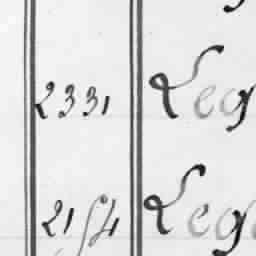 2331 Leg
2154 Leg